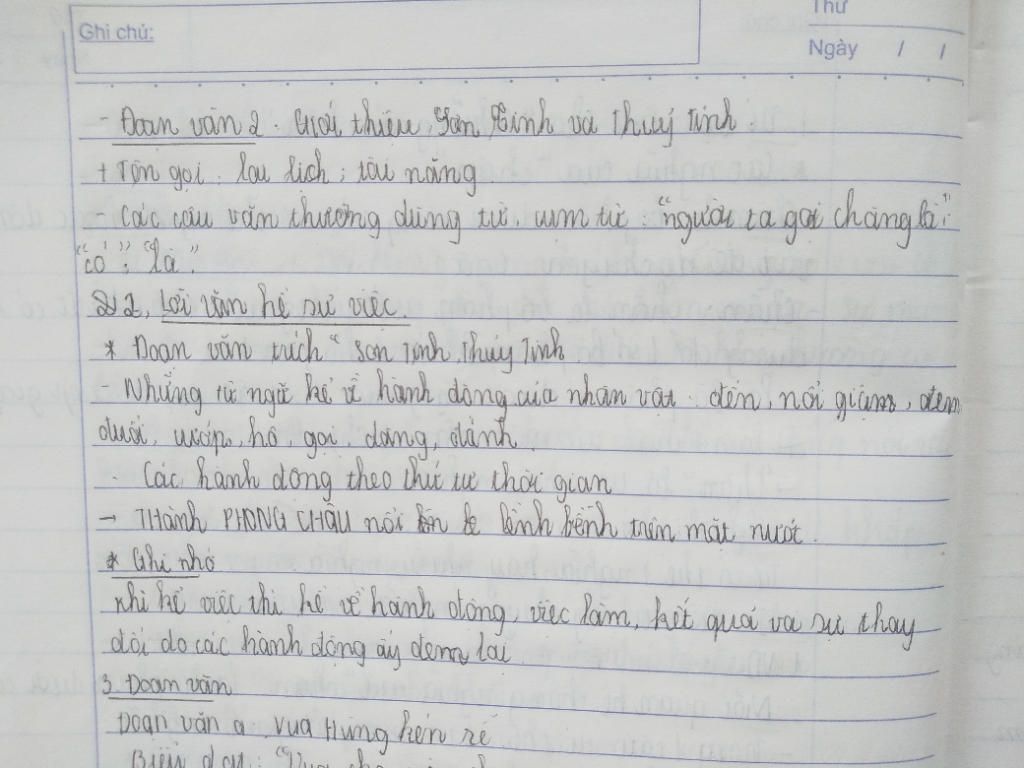 Ghi chú:
Thứ
Ngày / /
- Đoạn văn 2. Giới thiệu Sơn Tinh và Thuỷ Tinh
+ Tên gọi. lai lịch; tài năng
Các câu văn thường dùng từ, cụm từ "người ta gọi chàng là";
"có"; "là"
2, Lời văn kể sự việc.
* Đoạn văn trích "Sơn Tinh, Thủy Tinh
- Những từ ngữ kể về hành động của nhân vật. đến, nổi giận, đem
đuổi, cướp, hô, gọi, dâng, đánh
- Các hành động theo thứ tự thời gian
→ THành PHONG CHÂU nổi lềnh bềnh trên mặt nước.
* Ghi nhớ
Khi kể việc thì kể về hành động, việc làm, kết quả và sự thay
đổi do các hành động ấy đem lại
3. Đoạn văn
Đoạn văn a. Vua Hùng kén rể
Biểu đạt: "Vua